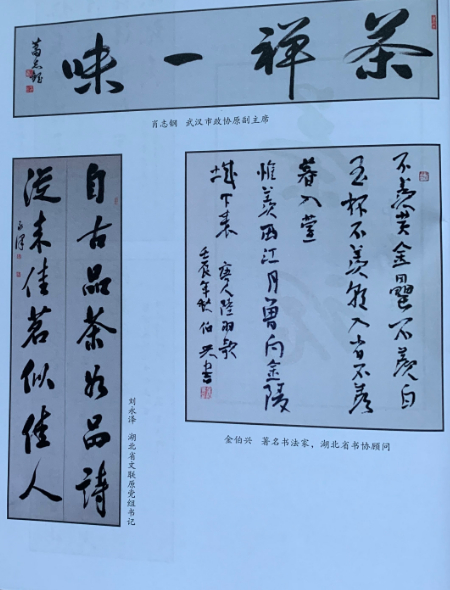 茶禅一味
肖志钢 武汉市政协原副主席
自古品茶如品詩
從来佳茗似佳人
永泽
刘永泽 湖北省文联原党组书记
不羡黄金罍不羡白
玉杯不羡朝入省不羡
暮入臺
惟羡西江月曾向金陵
城下来 唐人陸羽歌
壬辰年秋伯兴書
金伯兴 著名书法家，湖北省书协顾问